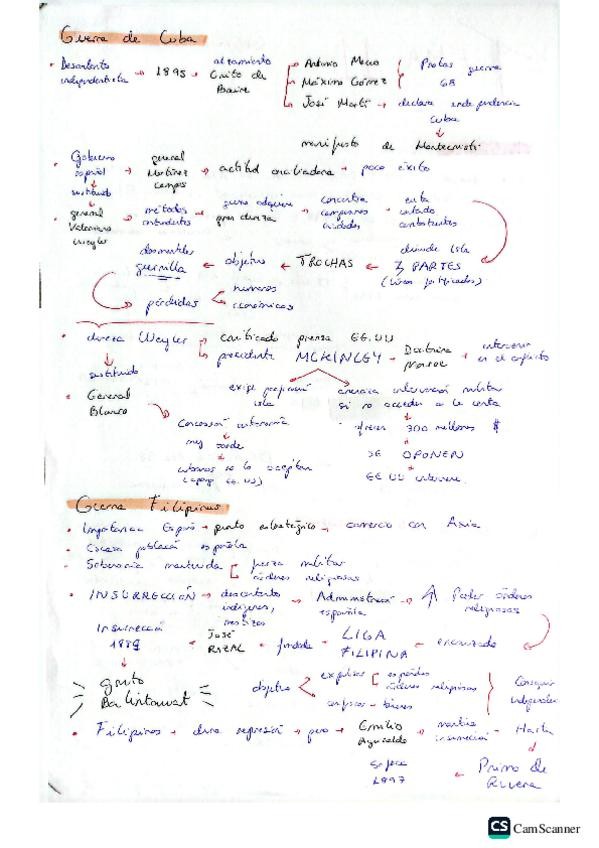 Guerra de Cuba
Descontento independentista → 1895 → alzamiento Grito de Baire
Antonio Maceo
Máximo Gómez
Protas guerra
José Martí → declara independencia Cuba
manifiesto de Montecristi
Gobierno español → general Martínez Campos → actitud conciliadora → poco éxito
sustituido
general Valeriano Weyler → métodos contundentes → guerra adquiere gran dureza → concentra campesinos ciudades → evita contacto combatientes
divide Isla
3 PARTES
(líneas fortificadas)
TROCHAS
objetivo
desmantelar guerrilla
pérdidas
humanas
económicas
dureza Weyler
criticado prensa EE.UU
presidente MCKINLEY → Doctrina Monroe → intervenir en el conflicto
sustituido
General Blanco
exige pacificación isla
amenaza intervención militar si no acceden a la venta
Concesión autonomía
muy tarde
cubanos no lo aceptan
(apoyo EE.UU)
ofrecen 300 millones $
SE OPONEN
EE.UU interviene
Guerra Filipinas
Importancia España → punto estratégico → comercio con Asia
Escasa población española
Soberanía mantenida
fuerza militar
órdenes religiosas
INSURRECCIÓN → descontento indígenas, mestizos → Administración española → Poder órdenes religiosas
Insurrección
José RIZAL → fundada → LIGA FILIPINA
objetivo
expulsar
españoles
órdenes religiosas
confiscar → bienes
Conseguir independencia
Filipinos → dura represión → pero → Emilio Aguinaldo → mantiene insurrección → Hasta
Primo de Rivera
CS CamScanner